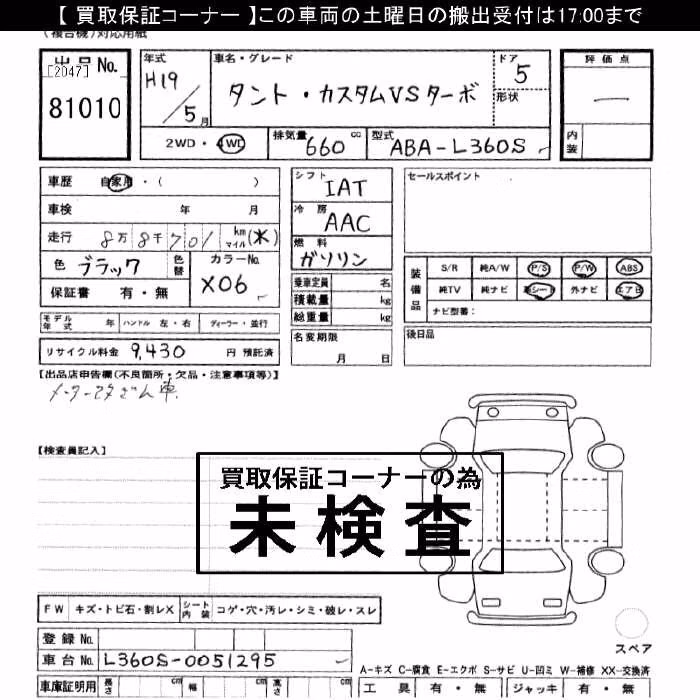 【 買取保証コーナー 】この車両の土曜日の搬出受付は17:00まで
(複合機)対応用紙
出品No.
[2047]
81010
年式
H19/5月
車名・グレード
タント・カスタムVSターボ
ドア
5
形状
評価点
—
内装
2WD・4WD
排気量
660 cc
型式
ABA-L360S
車歴 自家用・( )
車検 年 月
走行 8万8千701 km マイル
色 ブラック
色替
カラーNo.
X06
保証書 有・無
シフト
IAT
冷房
AAC
燃料
ガソリン
乗車定員 名
積載量 kg
総重量 kg
セールスポイント
装備品
S/R 純A/W P/S P/W ABS
純TV 純ナビ 革シート 外ナビ エアB
ナビ型番:
モデル年式 年 ハンドル 左・右 ディーラー・並行
名変期限
月 日
後日品
リサイクル料金 9,430 円 預託済
【出品店申告欄(不良箇所・欠品・注意事項等)】
【検査員記入】
買取保証コーナーの為
未検査
FW キズ・トビ石・割レX シート内装 コゲ・穴・汚レ・シミ・破レ・スレ
登録No.
車台No. L360S-0051295
車庫証明用 長さ cm 幅 cm 高さ cm
スペア
A-キズ C-腐食 E-エクボ S-サビ U-凹ミ W-補修 XX-交換済
工具 有・無 ジャッキ 有・無